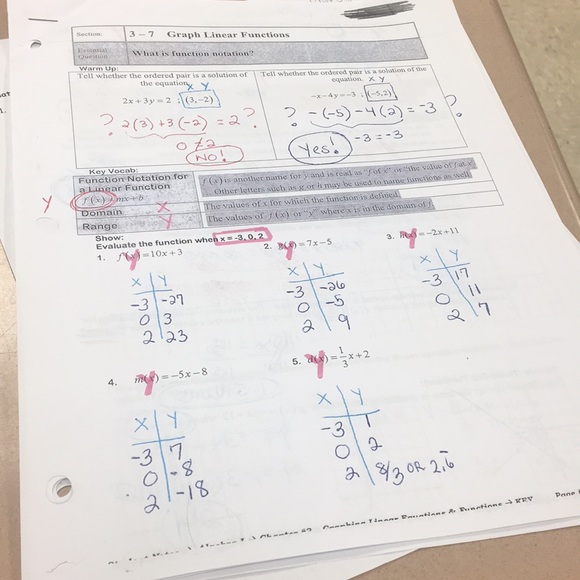 Section: 3 – 7 Graph Linear Functions
Essential Question: What is function notation?
Warm Up:
Tell whether the ordered pair is a solution of the equation.
X Y
2x + 3y = 2 ; (3, –2)
? 2(3) + 3(-2) = 2 ?
0 ≠ 2
NO!
Tell whether the ordered pair is a solution of the equation.
X Y
–x – 4y = –3 ; (–5, 2)
? -(-5) - 4(2) = -3 ?
-3 = -3
Yes!
Key Vocab:
Function Notation for a Linear Function
f(x) = mx + b
Y
f(x) is another name for y and is read as "f of x" or "the value of f at x"
Other letters such as g or h may be used to name functions as well
Domain X
The values of x for which the function is defined
Range Y
The values of f(x) or "y" where x is in the domain of f
Show:
Evaluate the function when x = -3, 0, 2
1. f(x) = 10x + 3
y
X Y
-3 -27
0 3
2 23
2. = 7x – 5
y
X Y
-3 -26
0 -5
2 9
3. h(x) = –2x + 11
y
X Y
-3 17
0 11
2 7
4. m(x) = –5x – 8
y
X Y
-3 7
0 -8
2 -18
5. = 1/3 x + 2
y
X Y
-3 1
0 2
2 8/3 OR 2.6̅
Graphing Linear Equations & Functions → KEY
Page